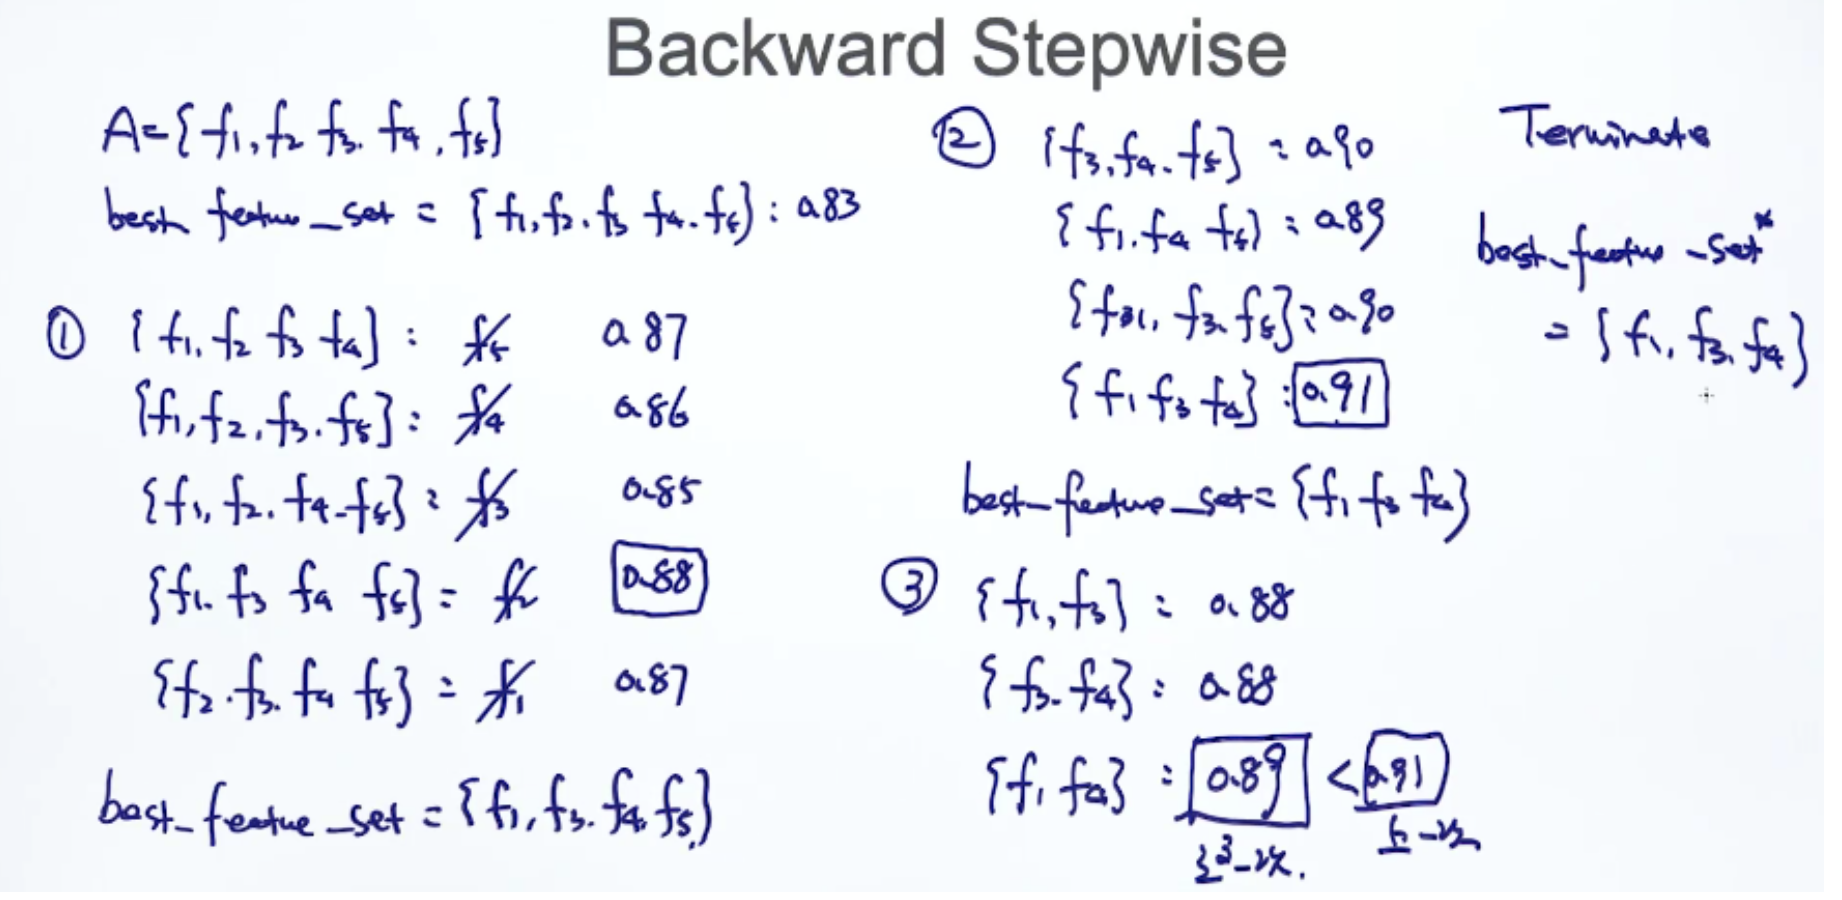 Backward Stepwise
A={f1, f2 f3. f4, f5}
best featur_set = {f1, f2. f3 f4. f5} : 0.83
① {f1, f2 f3 f4} : f5 0.87
{f1, f2, f3. f5} : f4 0.86
{f1, f2. f4. f5} : f3 0.85
{f1. f3 f4 f5} = f2 0.88
{f2. f3. f4 f5} = f1 0.87
best_feature_set = {f1, f3. f4. f5}
② {f3, f4. f5} : 0.90
{f1. f4 f5} : 0.89
{f1, f3. f5} : 0.90
{f1 f3 f4} : 0.91
best_feature_set = {f1 f3 f4}
③ {f1, f3} : 0.88
{f3. f4} : 0.88
{f1 f4} : 0.89 < 0.91
Terminate
best_featur_set*
= {f1, f3, f4}